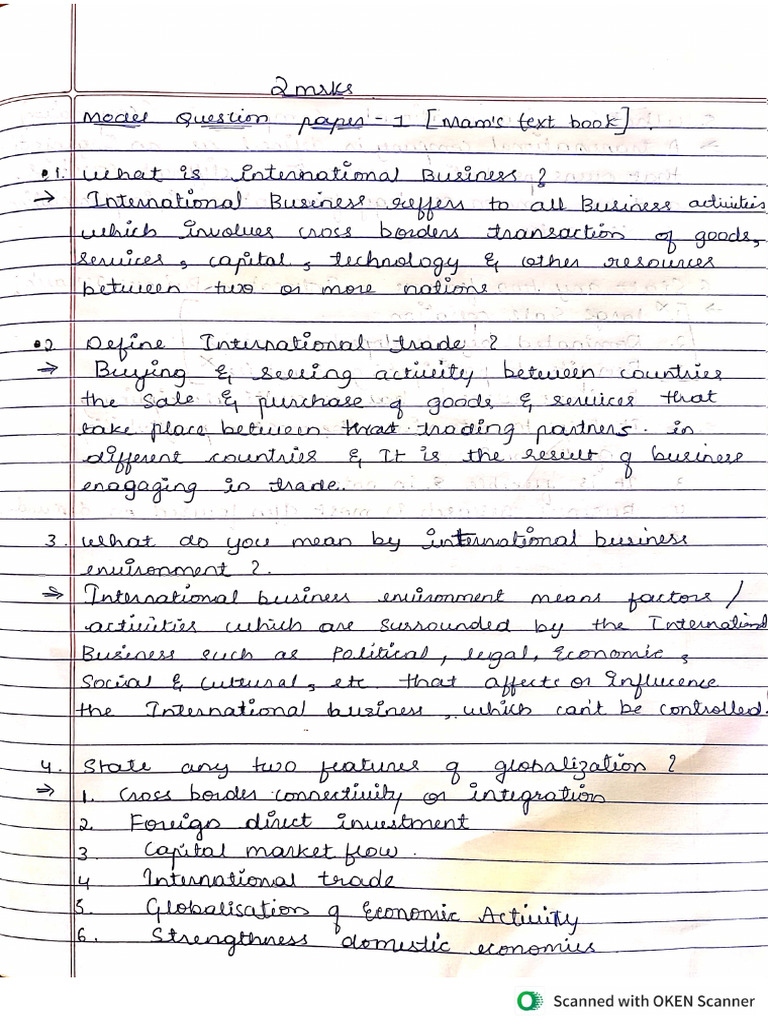 2 marks
Model Question paper - 1 [Mam's text book].
1. What is International Business ?
→ International Business reffers to all Business activities
which involves cross borders transaction of goods,
services, capital, technology & other resources
between two or more nations.
2 Define International trade ?
→ Buying & selling activity between countries
the sale & purchase of goods & services that
take place between that trading partners. in
different countries & It is the result of business
enagaging in trade.
3. What do you mean by international business
environment ?.
→ International business environment means factors /
activities which are surrounded by the International
Business such as Political, legal, Economic,
Social & Cultural, etc that affects or Influcence
the International business, which can't be controlled.
4. State any two features of globalization ?
→ 1. Cross border connectivity or integration
2. Foreign direct investment
3. Capital market flow.
4 International trade
5. Globalisation of Economic Activity
6. Strengthness domestic economies
Scanned with OKEN Scanner